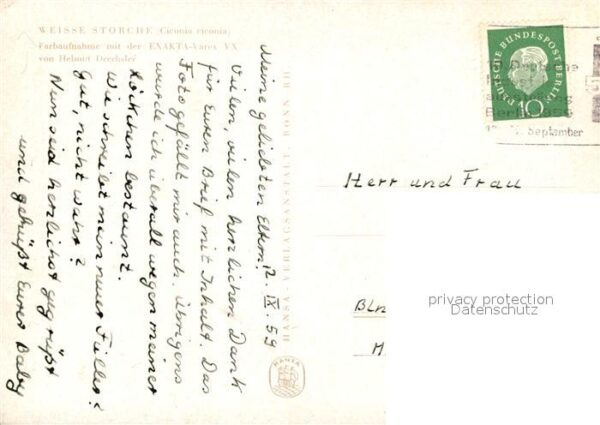 WEISSE STÖRCHE (Ciconia ciconia)
Farbaufnahme mit der EXAKTA-Varex VX
von Helmut Drechsler
12. IX. 59
Meine geliebten Eltern!
Vielen, vielen herzlichen Dank
für Euren Brief mit Inhalt. Das
Foto gefällt mir auch. Übrigens
wurde ich überall wegen meiner
Löckchen bestaunt.
Wie schreibt mein neuer Füller?
Gut, nicht wahr?
Nun seid herzlichst gegrüßt
und geküßt Eurer Baby
HANSA VERLAGSANSTALT BONN RH
HANSA
DEUTSCHE BUNDESPOST BERLIN
10
Deutsche
Berlin 1959
September
Herr und Frau
Bln
privacy protection
Datenschutz